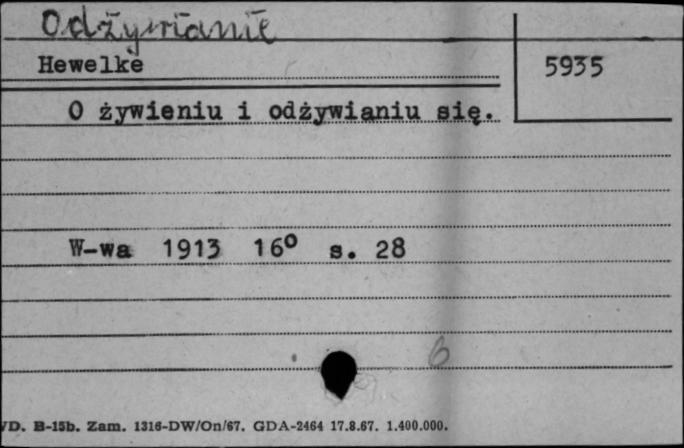 Odżywianie
Hewelke
5935
O żywieniu i odżywianiu się.
W-wa 1913 16º s. 28
6
VD. B-15b. Zam. 1316-DW/On/67. GDA-2464 17.8.67. 1.400.000.